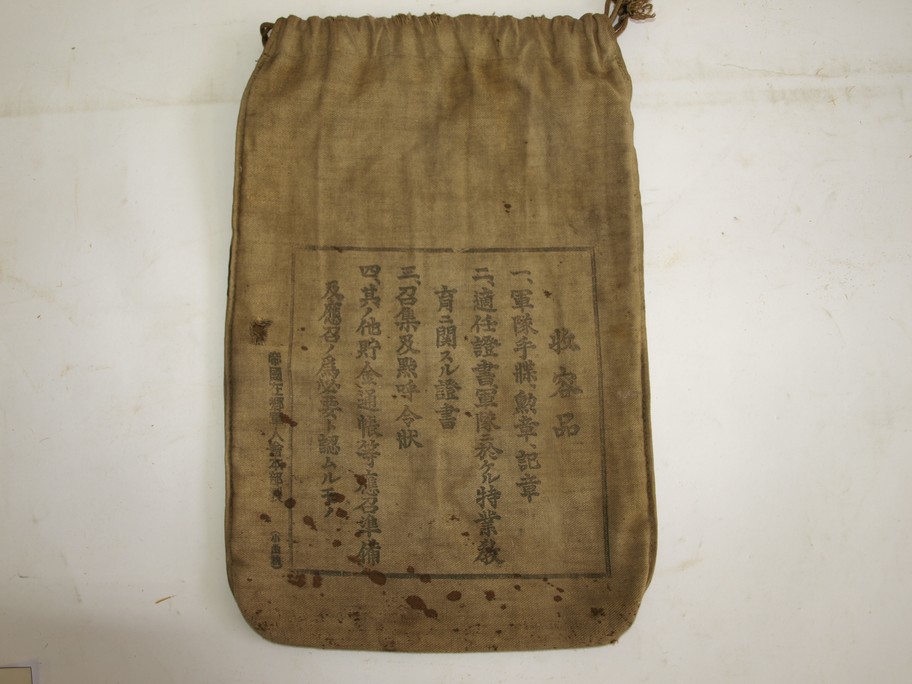 收容品
一、軍隊手牒、勲章、記章
二、適任證書軍隊ニ於ケル特業敎
育ニ關スル證書
三、召集及點呼令狀
四、其ノ他貯金通帳等應召準備
及應召ノ爲必要ト認ムルモノ
帝國在鄕軍人會本部